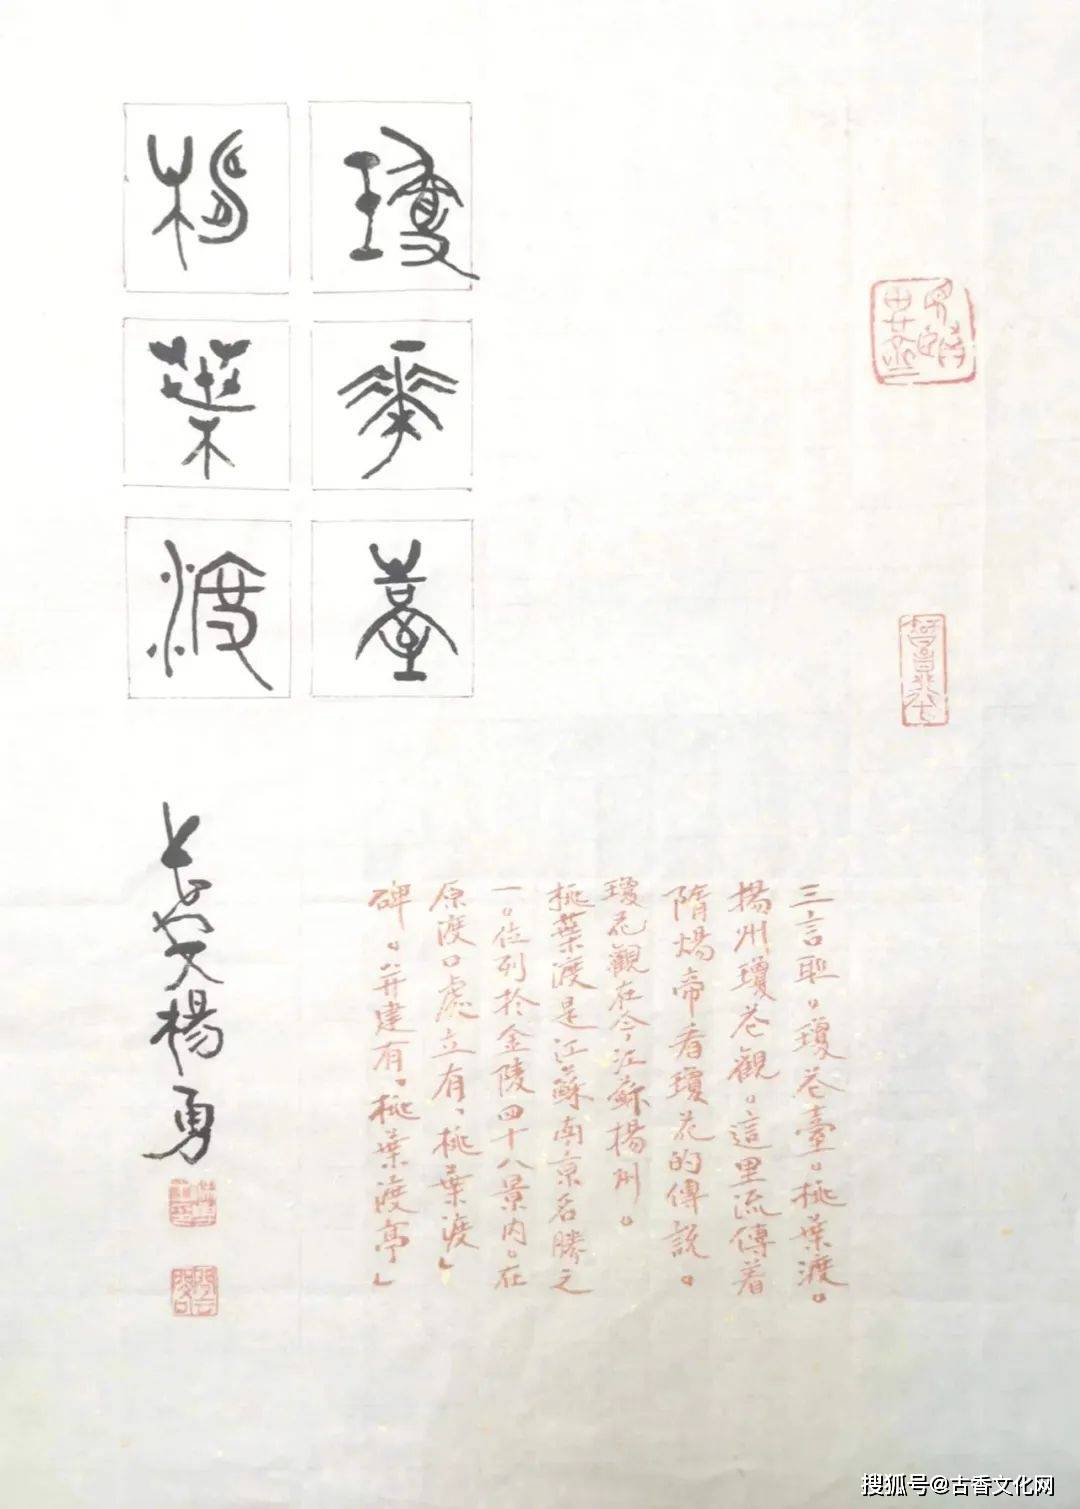 瓊華臺
桃葉渡
三言联。瓊花臺。桃葉渡。
揚州瓊花觀。這里流傳着
隋煬帝看瓊花的傳說。
瓊花觀在今江蘇揚州。
桃葉渡是江蘇南京名勝之
一。位列於金陵四十八景内。在
原渡口處立有、桃葉渡」
碑。并建有、桃葉渡亭」
長安楊勇
搜狐号@古香文化网